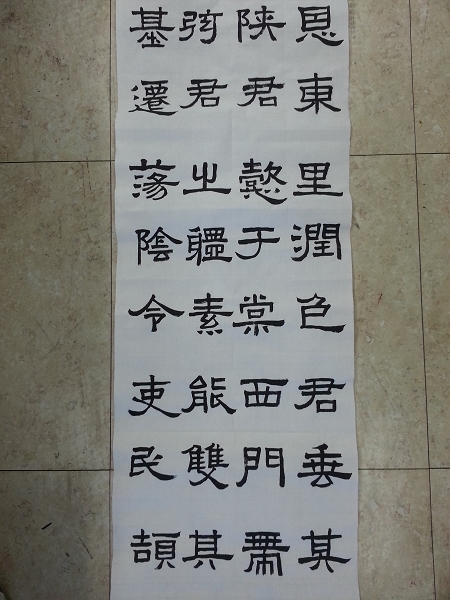 恩東里潤色君垂其
陝君懿于棠西門帶
弦君之體素能雙其
基遷蕩陰令吏民頡